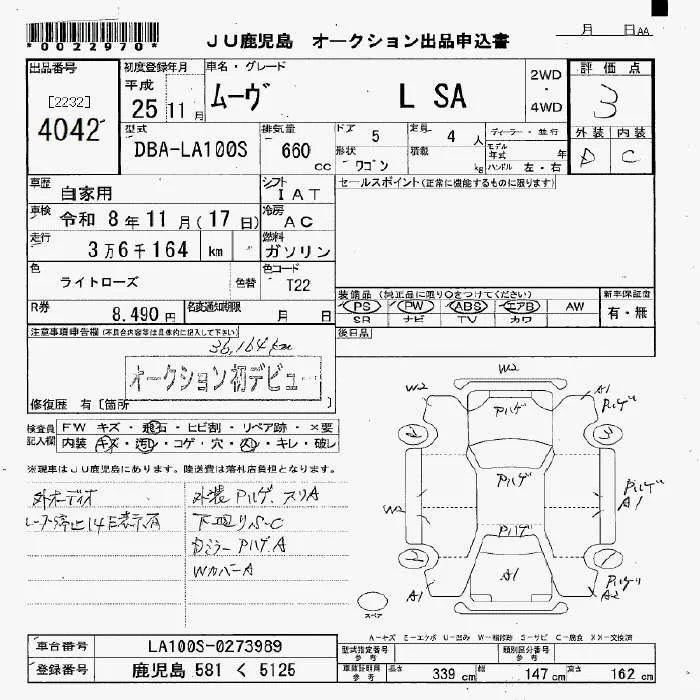 *0022970*
JU鹿児島 オークション出品申込書
月 日AA
出品番号
[2232]
4042
初度登録年月
平成
25 11月
車名・グレード
ムーヴ L SA
2WD
・
4WD
評価点
3
外装 内装
D C
型式
DBA-LA100S
排気量
660 cc
ドア 5
定員 4 人
形状 ワゴン
積載 kg
ディーラー・並行
モデル年式 年
ハンドル 左・右
車歴 自家用
シフト IAT
セールスポイント(正常に機能するものに限ります)
車検 令和 8年 11月(17日)
冷房 AC
走行 3万6千164 km
燃料 ガソリン
色 ライトローズ 色替
色コード T22
R券 8,490円
名変通知期限 月 日
装備品(純正品に限り○をつけてください)
PS PW ABS エアB AW
SR ナビ TV カワ
新車保証書
有・無
注意事項申告欄(不具合内容等は具体的に記入して下さい)
後日品
36,164km
オークション初デビュー
修復歴 有[箇所 ]
検査員記入欄
FW キズ・飛石・ヒビ割・リペア跡・×要
内装 キズ・汚レ・コゲ・穴・スレ・キレ・破レ
※現車はJU鹿児島にあります。陸送費は落札店負担となります。
外オーディオ
レーダー停止14E表示有
外装 Pハゲ、スリA
下回りS-C
Dミラー Pハゲ.A
WカバーA
W2
W2
A1
Pハゲ
Pハゲ
Pハゲ
A1
W2
Pハゲ
A1
A1
A2
スペア
A-キズ E-エクボ U-凹み W-補修跡 S-サビ C-腐食 XX-交換済
車台番号 LA100S-0273989
型式指定番号
参考
類別区分番号
参考
登録番号 鹿児島 581 く 5125
車検証記載
参考
長さ 339 cm
幅 147 cm
高さ 162 cm